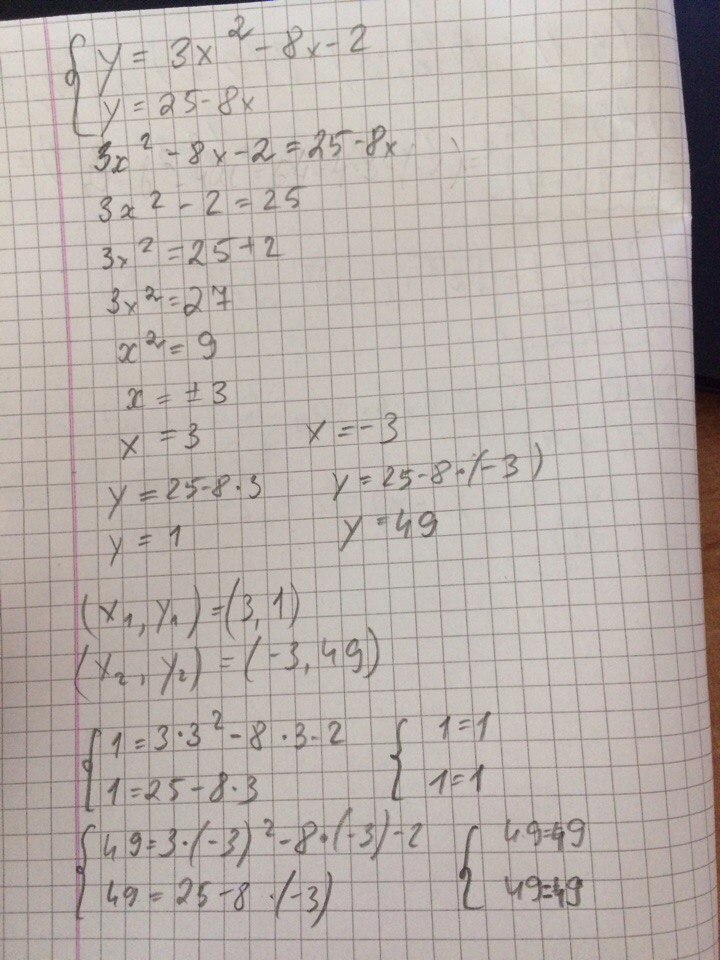 { y = 3x² - 8x - 2
y = 25 - 8x
3x² - 8x - 2 = 25 - 8x
3x² - 2 = 25
3x² = 25 + 2
3x² = 27
x² = 9
x = ± 3
x = 3 x = -3
y = 25 - 8 · 3 y = 25 - 8 · (-3)
y = 1 y = 49
(x₁, y₁) = (3, 1)
(x₂, y₂) = (-3, 49)
{ 1 = 3 · 3² - 8 · 3 - 2 { 1 = 1
1 = 25 - 8 · 3 1 = 1
{ 49 = 3 · (-3)² - 8 · (-3) - 2 { 49 = 49
49 = 25 - 8 · (-3) 49 = 49